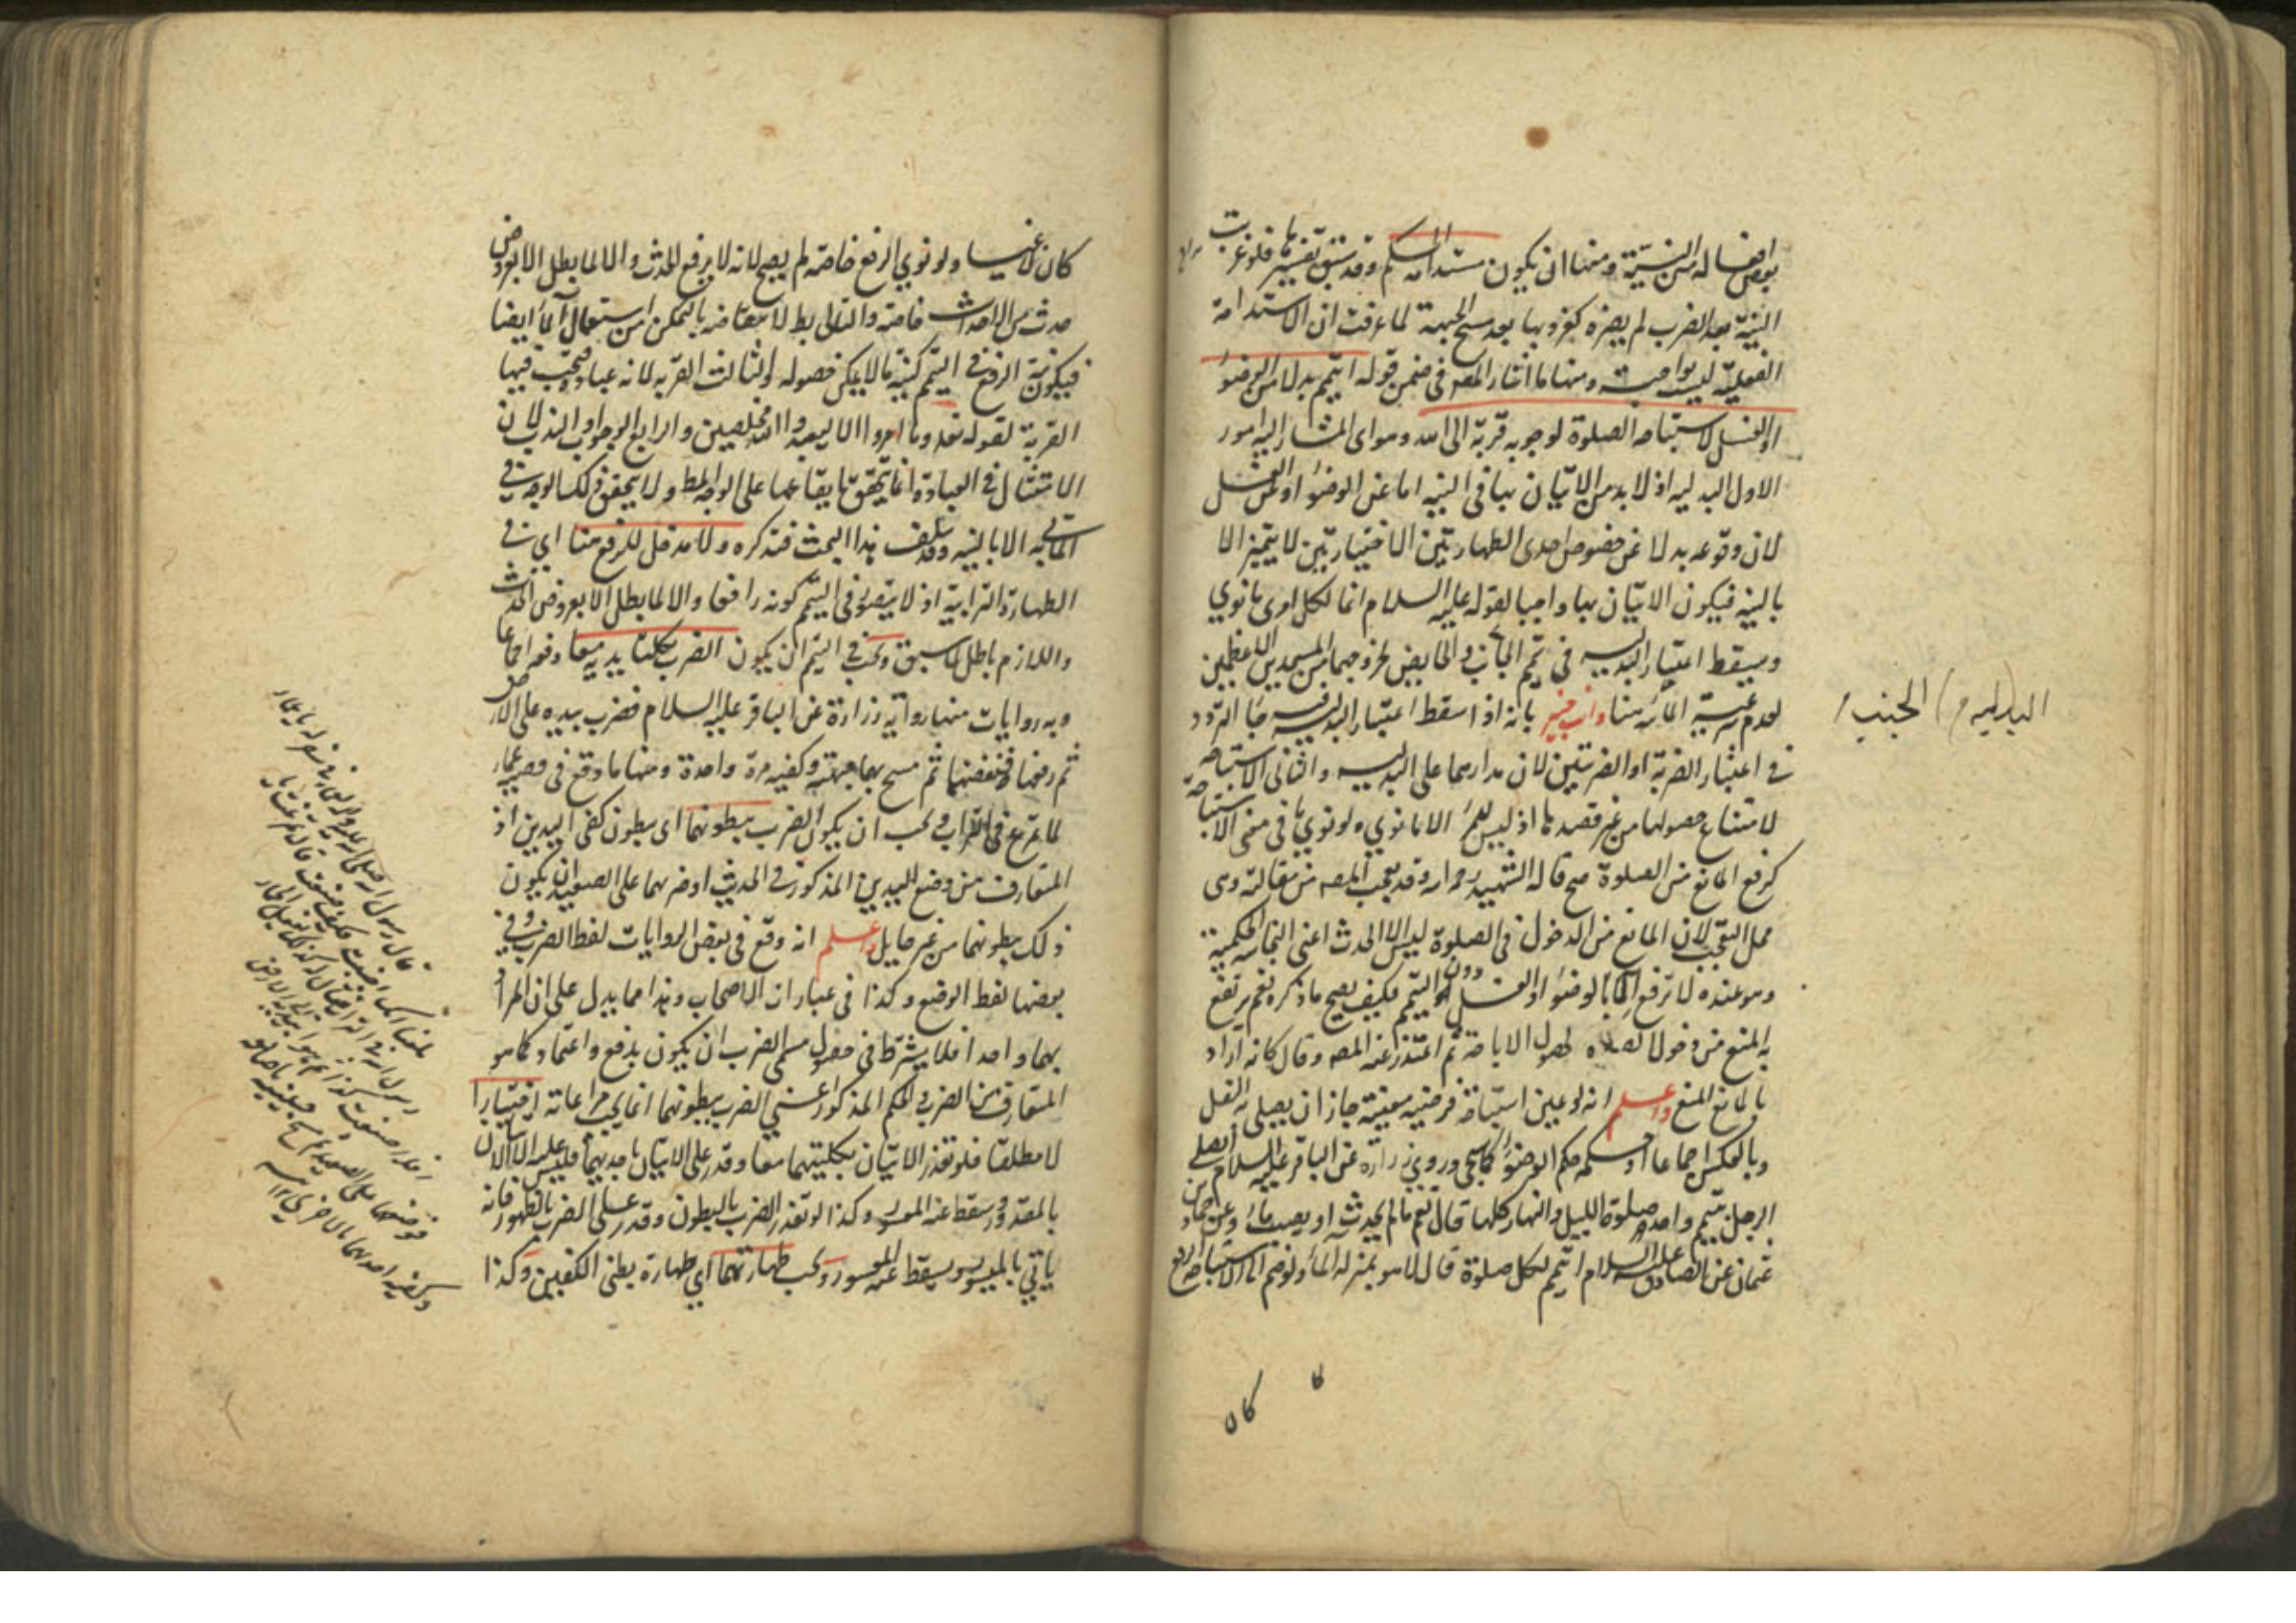 بعض افعاله من النية ومنها ان يكون مستدامة الحكم وقد سبق تفسيرها فلو عزبت
النية بعد الضرب لم يضره كعزوبها بعد مسح الجبهة لما عرفت ان الاستدامة
الفعلية ليست بواجبة ومنها ما اشار المصه في ضمن قوله اتيمم بدلا من الوضوء
او الغسل لاستباحة الصلوة لوجوبه قربة الى الله وهو اى المشار اليه امور
الاول البدلية اذ لا بد من الاتيان بها في النية اما عن الوضوء او عن الغسل
لان وقوعه بدلا عن خصوص احدى الطهارتين الاختياريتين لا يتميز الا
بالنية فيكون الاتيان بها واجبا لقوله عليه السلام انما لكل امرئ ما نوي
ويسقط اعتبار البدلية في تيمم الجنب والحايض لخروجهما من المسجدين الاعظمين
لعدم شرعية المائية هنا وان خبير بانه اذا سقط اعتبار البدلية فيه جاء التردد
في اعتبار الضربة او الضربتين لان مدارهما على البدلية والثانى الاستباحة
لامتناع حصولها من غير قصدها اذ ليس للمرء الا ما نوي ولو نوي ما في معنى الاستباحة
كرفع المانع من الصلوة صح قاله الشهيد رحمه الله وقد تعجب المصه من مقالته وهى
محل التعجب لان المانع من الدخول في الصلوة ليس الا الحدث اعنى النجاسة الحكمية
وهو عنده لا ترفع الا بالوضوء او الغسل دون التيمم فكيف يصح ما ذكره نعم يرتفع
به المنع من دخول الصلاه لحصول الاباحة ثم اعتذر عنه المصه وقال كانه اراد
بالمانع المنع واعلم انه لو عين استباحة فريضة معينة جاز ان يصلى به النفل
وبالعكس اجماعا اذ حكمه حكم الوضوء كما سيجى وروى زرارة عن الباقر عليه السلام ايصلى
الرجل بتيمم واحد صلوة الليل والنهار كلها قال نعم ما لم يحدث او يصيب ماء وعن حماد بن
عثمان عن الصادق عليه السلام اتيمم لكل صلوة قال لا هو بمنزلة الماء ولو ضم الى الاستباحة الرفع
كان
البدلية
الجنب
كان لاغيا ولو نوي الرفع خاصة لم يصح لانه لا يرفع الحدث والا لما بطل الا بعروض
حدث من الاحداث خاصة والتالى بط لانتقاضه بالتمكن من استعمال الماء ايضا
فيكون نية الرفع في التيمم كنية ما لا يمكن حصوله والثالث القربة لانه عبادة فتجب فيها
القربة لقوله تعه وما امروا الا ليعبدوا الله مخلصين والرابع الوجوب او الندب لان
الامتثال في العبادة انما يتحقق بايقاعها على الوجه المط ولا يتحقق ذلك الوجه في
الماتى به الا بالنية وقد سلف هذا البحث فتذكره ولا مدخل للرفع هنا اي في
الطهارة الترابية اذ لا يتصور في التيمم كونه رافعا والا لما بطل الا بعروض الحدث
واللازم باطل كما سبق ويجب في التيمم ان يكون الضرب بكلتا يديه معا دفعة اجماعا
وبه روايات منها رواية زرارة عن الباقر عليه السلام فضرب بيديه على الارض
ثم رفعها فنفضها ثم مسح بهما جبهته وكفيه مرة واحدة ومنها ما وقع في قصة عمار
لما تمرغ في التراب ويجب ان يكون الضرب ببطونهما اى ببطون كفى اليدين اذ
المتعارف من وضع اليدين المذكور في الحديث او ضربهما على الصعيد ان يكون
ذلك ببطونهما من غير حايل واعلم انه وقع في بعض الروايات لفظ الضرب وفي
بعضها لفظ الوضع وكذا في عبارات الاصحاب وهذا مما يدل على ان المراد
بهما واحد فلا يشترط في حصول مسمى الضرب ان يكون بدفع واعتماد كما هو
المتعارف من الضرب والحكم المذكور اعنى الضرب ببطونهما انما يجب مراعاته اختيارا
لا مطلقا فلو تعذر الاتيان بكليتهما معا وقدر على الاتيان باحديهما فليس عليه الا الاتيان
بالمقدور وسقط عنه المعسور وكذا لو تعذر الضرب بالبطون وقدر على الضرب بالظهور فانه
ياتي بالميسور ويسقط عنه المعسور ويجب طهارتهما اي طهارة بطنى الكفين وكذا